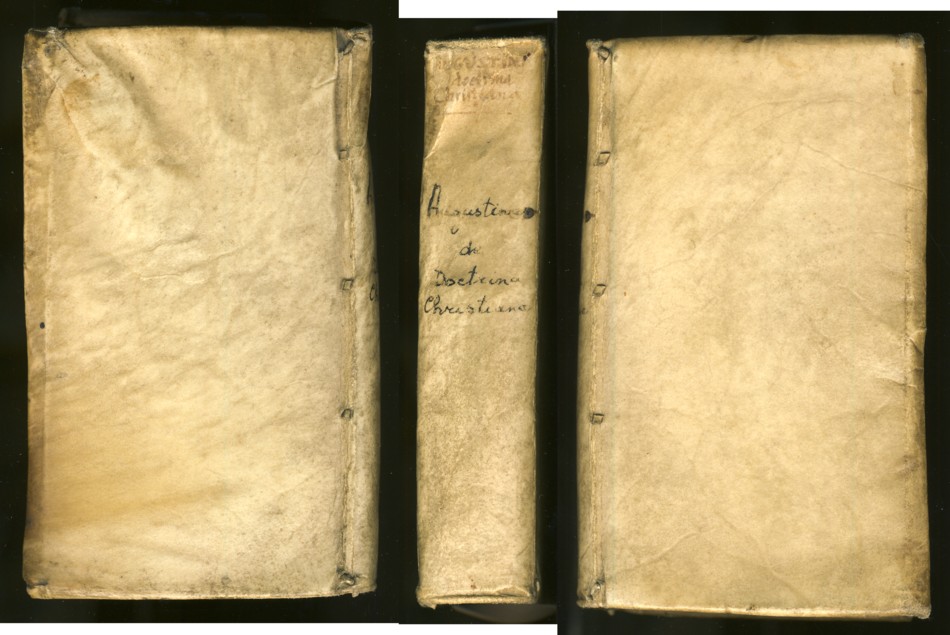 Doctrina
Christiana
Augustinus
de
Doctrina
Christiana